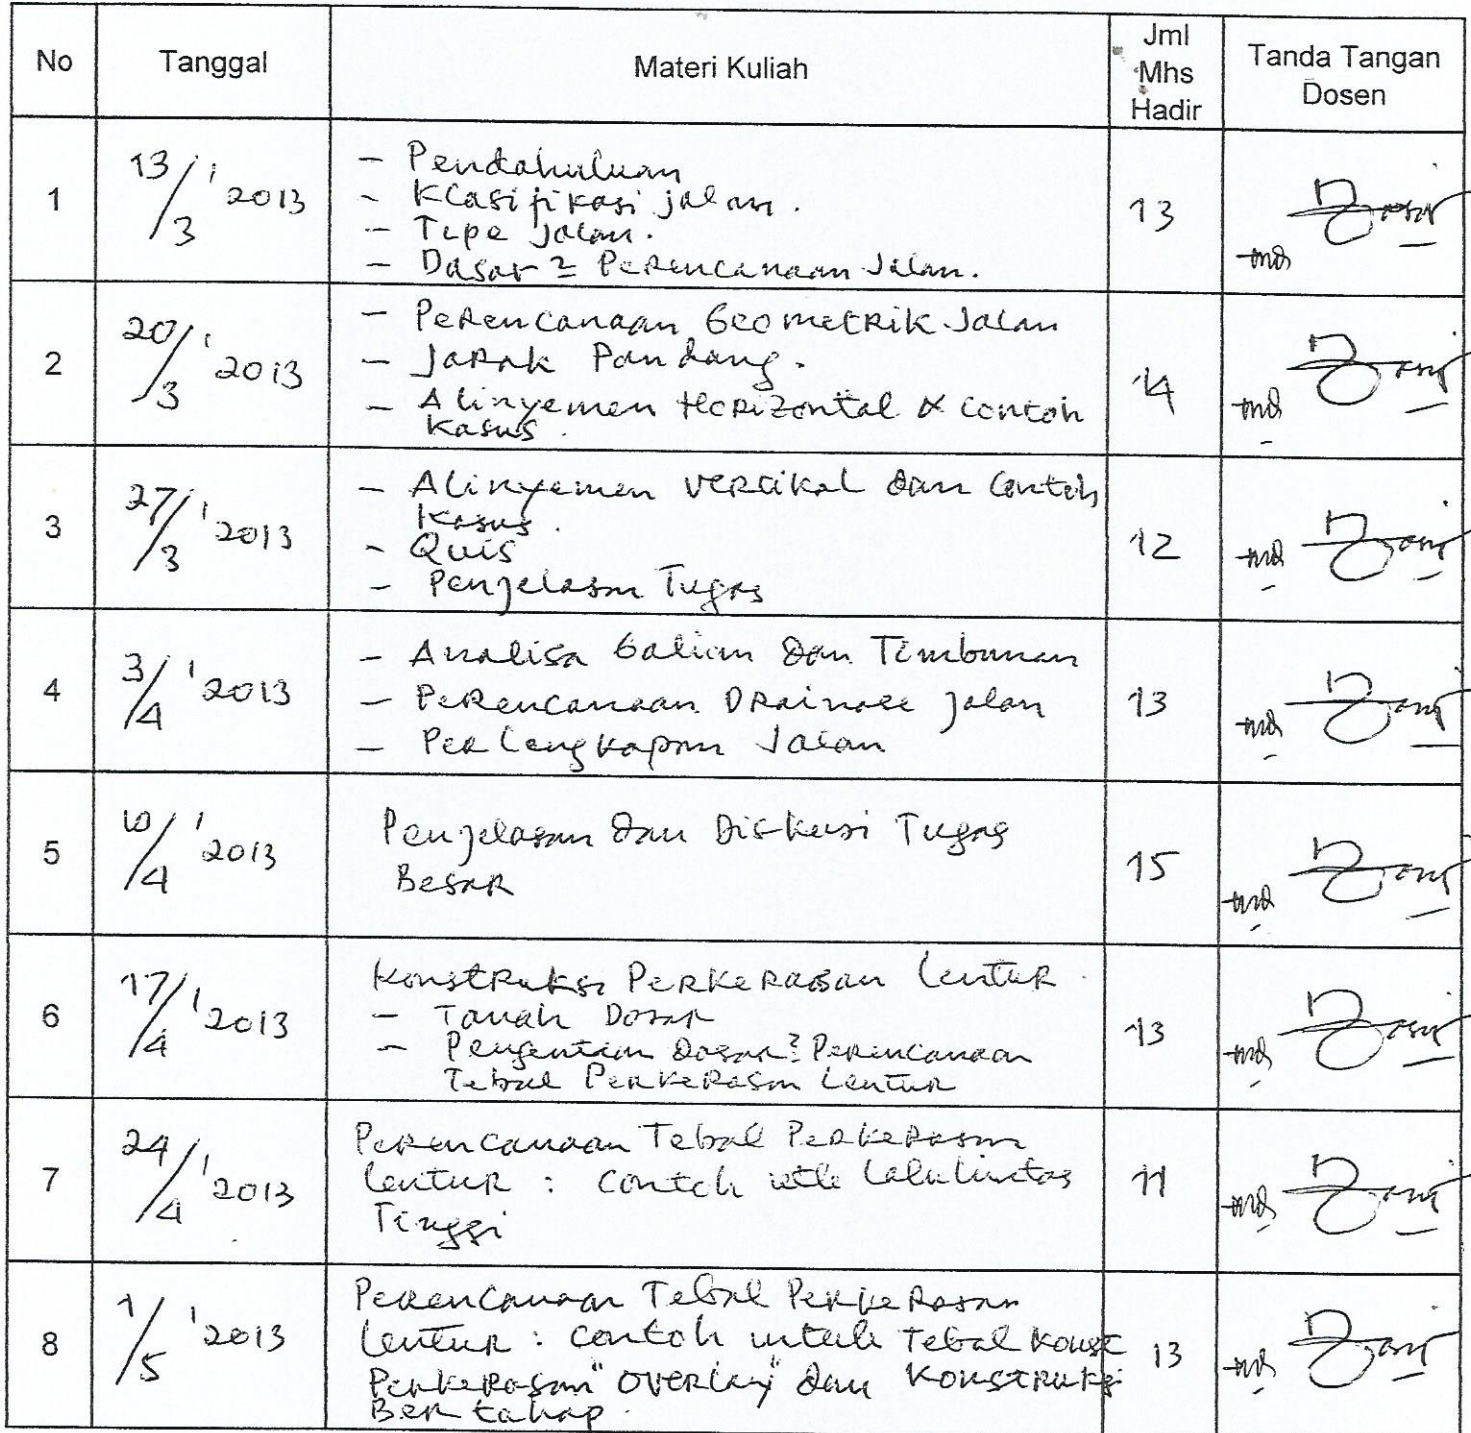 No Tanggal Materi Kuliah Jml Mhs Hadir Tanda Tangan Dosen
1 13/3 ' 2013 13
- Pendahuluan
- Klasifikasi jalan.
- Tipe jalan.
- Dasar2 Perencanaan Jalan.
2 20/3 ' 2013 14
- Perencanaan Geometrik Jalan
- Jarak Pandang.
- Alinyemen Horizontal & contoh
kasus.
3 27/3 ' 2013 12
- Alinyemen vertikal dan contoh
kasus.
- Quis
- Penjelasan Tugas
4 3/4 ' 2013 13
- Analisa Galian dan Timbunan
- Perencanaan Drainase jalan
- Perlengkapan Jalan
5 10/4 ' 2013 15
Penjelasan dan Diskusi Tugas
Besar
6 17/4 ' 2013 13
Konstruksi Perkerasan lentur
- Tanah Dasar
- Pengertian dasar2 Perencanaan
Tebal Perkerasan Lentur
7 24/4 ' 2013 11
Perencanaan Tebal Perkerasan
lentur : contoh utk Lalu lintas
Tinggi
8 1/5 ' 2013 13
Perencanaan Tebal Perkerasan
lentur : contoh untuk Tebal Konst
Perkerasan "overlay" dan Konstruksi
Bertahap.